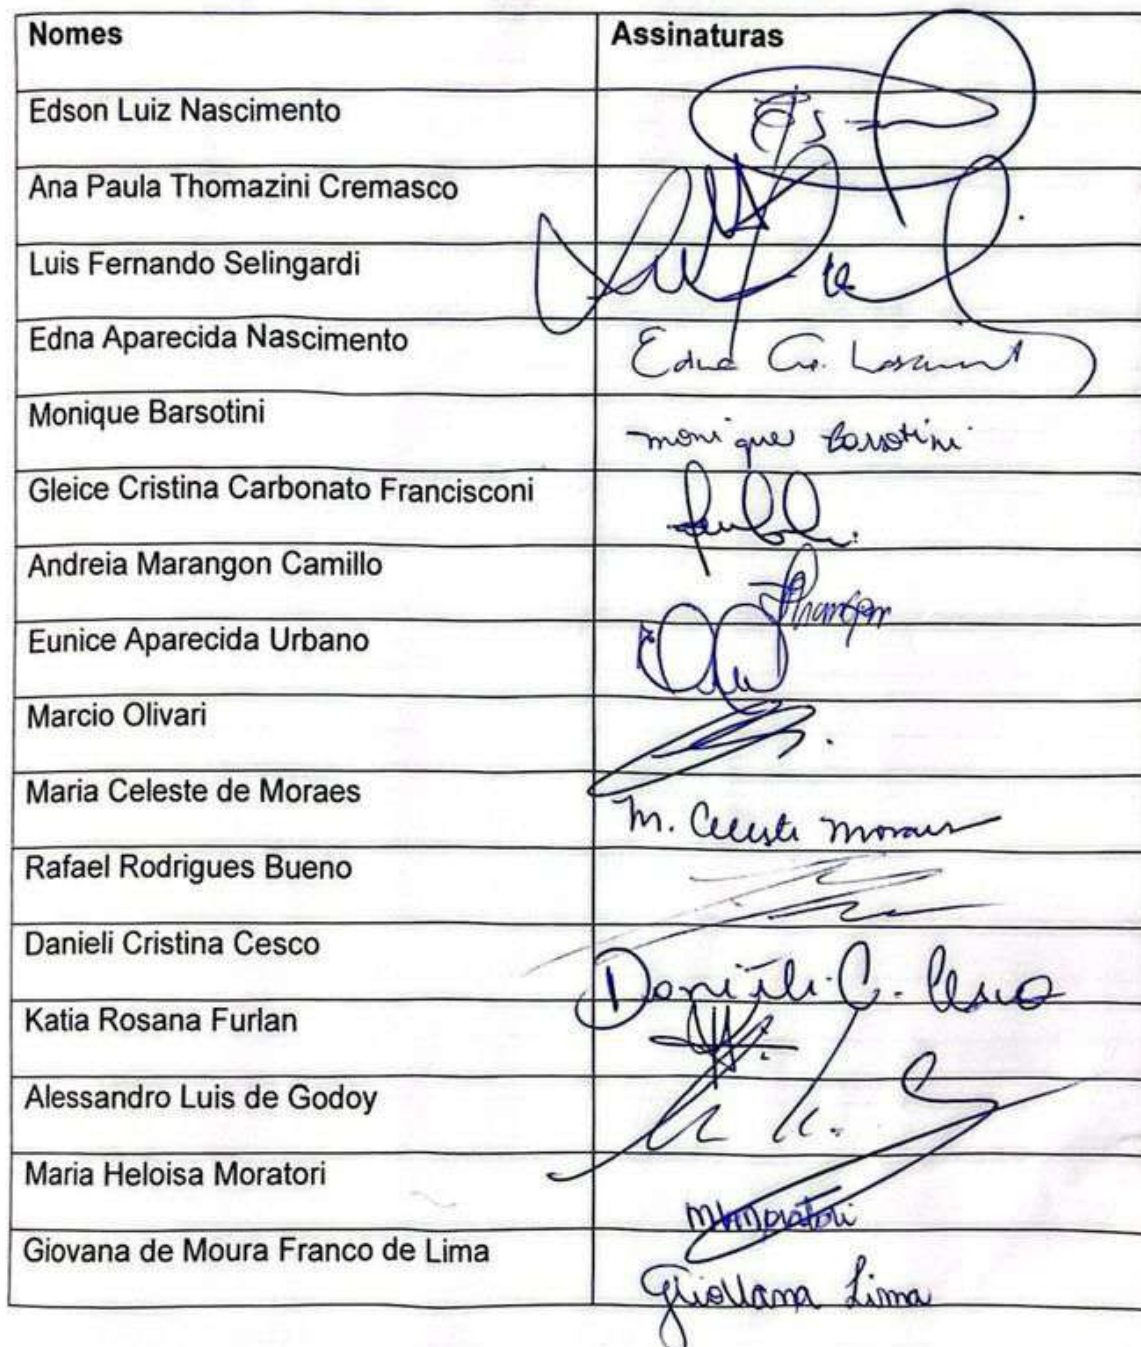 Nomes Assinaturas
Edson Luiz Nascimento
Ana Paula Thomazini Cremasco
Luis Fernando Selingardi
Edna Aparecida Nascimento Edna Ap.
Monique Barsotini monique Barsotini
Gleice Cristina Carbonato Francisconi
Andreia Marangon Camillo
Eunice Aparecida Urbano
Marcio Olivari
Maria Celeste de Moraes M. Celeste Moraes
Rafael Rodrigues Bueno
Danieli Cristina Cesco Danieli C. Cesco
Katia Rosana Furlan
Alessandro Luis de Godoy
Maria Heloisa Moratori MHMoratori
Giovana de Moura Franco de Lima Giovana Lima